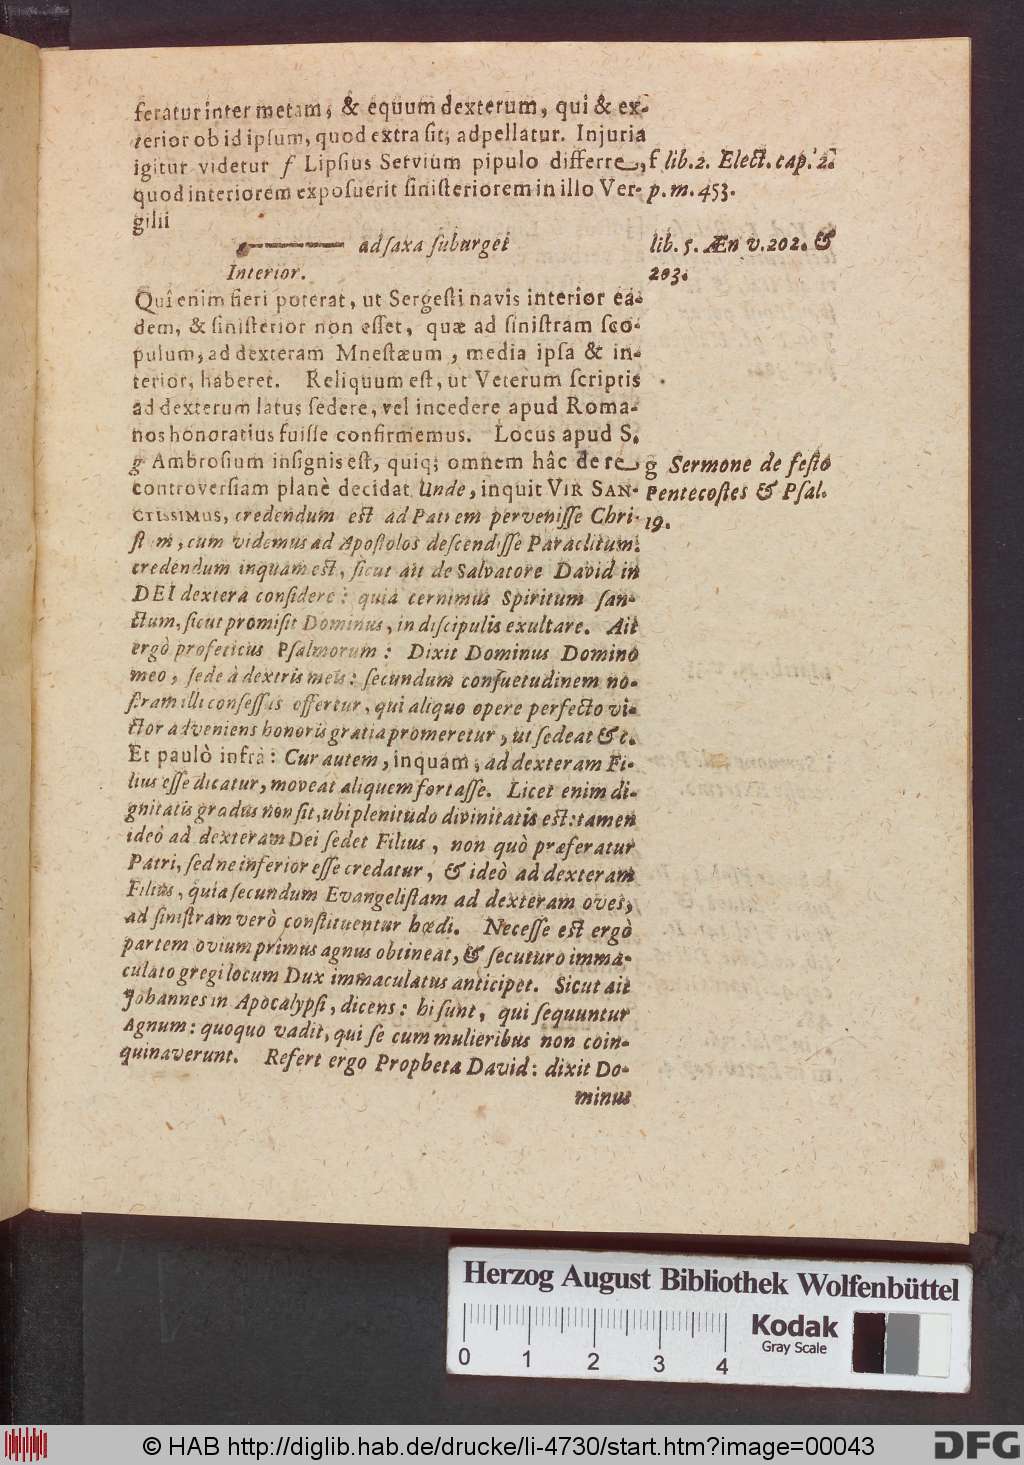 feratur inter metam, & equum dexterum, qui & ex-
terior ob id ipsum, quod extra sit, adpellatur. Injuria
igitur videtur f Lipsius Servium pipulo differre,
quod interiorem exposuerit sinisteriorem in illo Ver-
gilii
ad saxa suburget
Interior.
Qui enim fieri poterat, ut Sergesti navis interior ea-
dem, & sinisterior non esset, quæ ad sinistram sco-
pulum, ad dexteram Mnestæum, media ipsa & in-
terior, haberet. Reliquum est, ut Veterum scriptis
ad dexterum latus sedere, vel incedere apud Roma-
nos honoratius fuisse confirmemus. Locus apud S.
g Ambrosium insignis est, quiq; omnem hâc de re
controversiam planè decidat Unde, inquit VIR SAN-
CTISSIMUS, credendum est ad Patrem pervenisse Chri-
st m, cum videmus ad Apostolos descendisse Paraclitum:
credendum inquam est, sicut ait de Salvatore David in
DEI dextera considere: quia cernimus Spiritum san-
ctum, sicut promisit Dominus, in discipulis exultare. Ait
ergò profeticus Psalmorum: Dixit Dominus Domino
meo, sede à dextris meis: secundum consuetudinem no-
stram illi consessus offertur, qui aliquo opere perfecto vi-
ctor adveniens honoris gratia promeretur, ut sedeat &c.
Et paulò infrà: Cur autem, inquam, ad dexteram Fi-
lius esse dicatur, moveat aliquem fortasse. Licet enim di-
gnitatis gradus non sit, ubi plenitudo divinitatis est: tamen
ideò ad dexteram Dei sedet Filius, non quò præferatur
Patri, sed ne inferior esse credatur, & ideò ad dexteram
Filius, quia secundum Evangelistam ad dexteram oves,
ad sinistram verò constituentur hædi. Necesse est ergò
partem ovium primus agnus obtineat, & secuturo imma-
culato gregi locum Dux immaculatus anticipet. Sicut ait
Johannes in Apocalypsi, dicens: hi sunt, qui sequuntur
Agnum: quoquo vadit, qui se cum mulieribus non coin-
quinaverunt. Refert ergo Propheta David: dixit Do-
minus
f lib. 2. Elect. cap. 2.
p. m. 453.
lib. 5. Æn v. 202. &
203.
g Sermone de festo
Pentecostes & Psal.
19.
Herzog August Bibliothek Wolfenbüttel
0 1 2 3 4
Kodak
Gray Scale
© HAB http://diglib.hab.de/drucke/li-4730/start.htm?image=00043
DFG